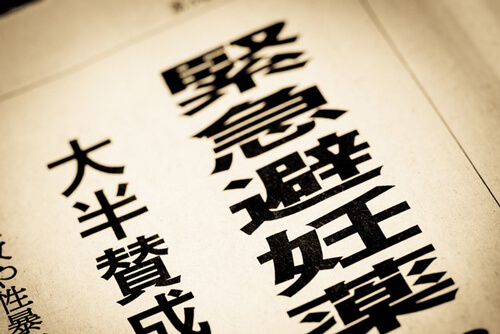 緊急避妊薬
大半賛成
性暴